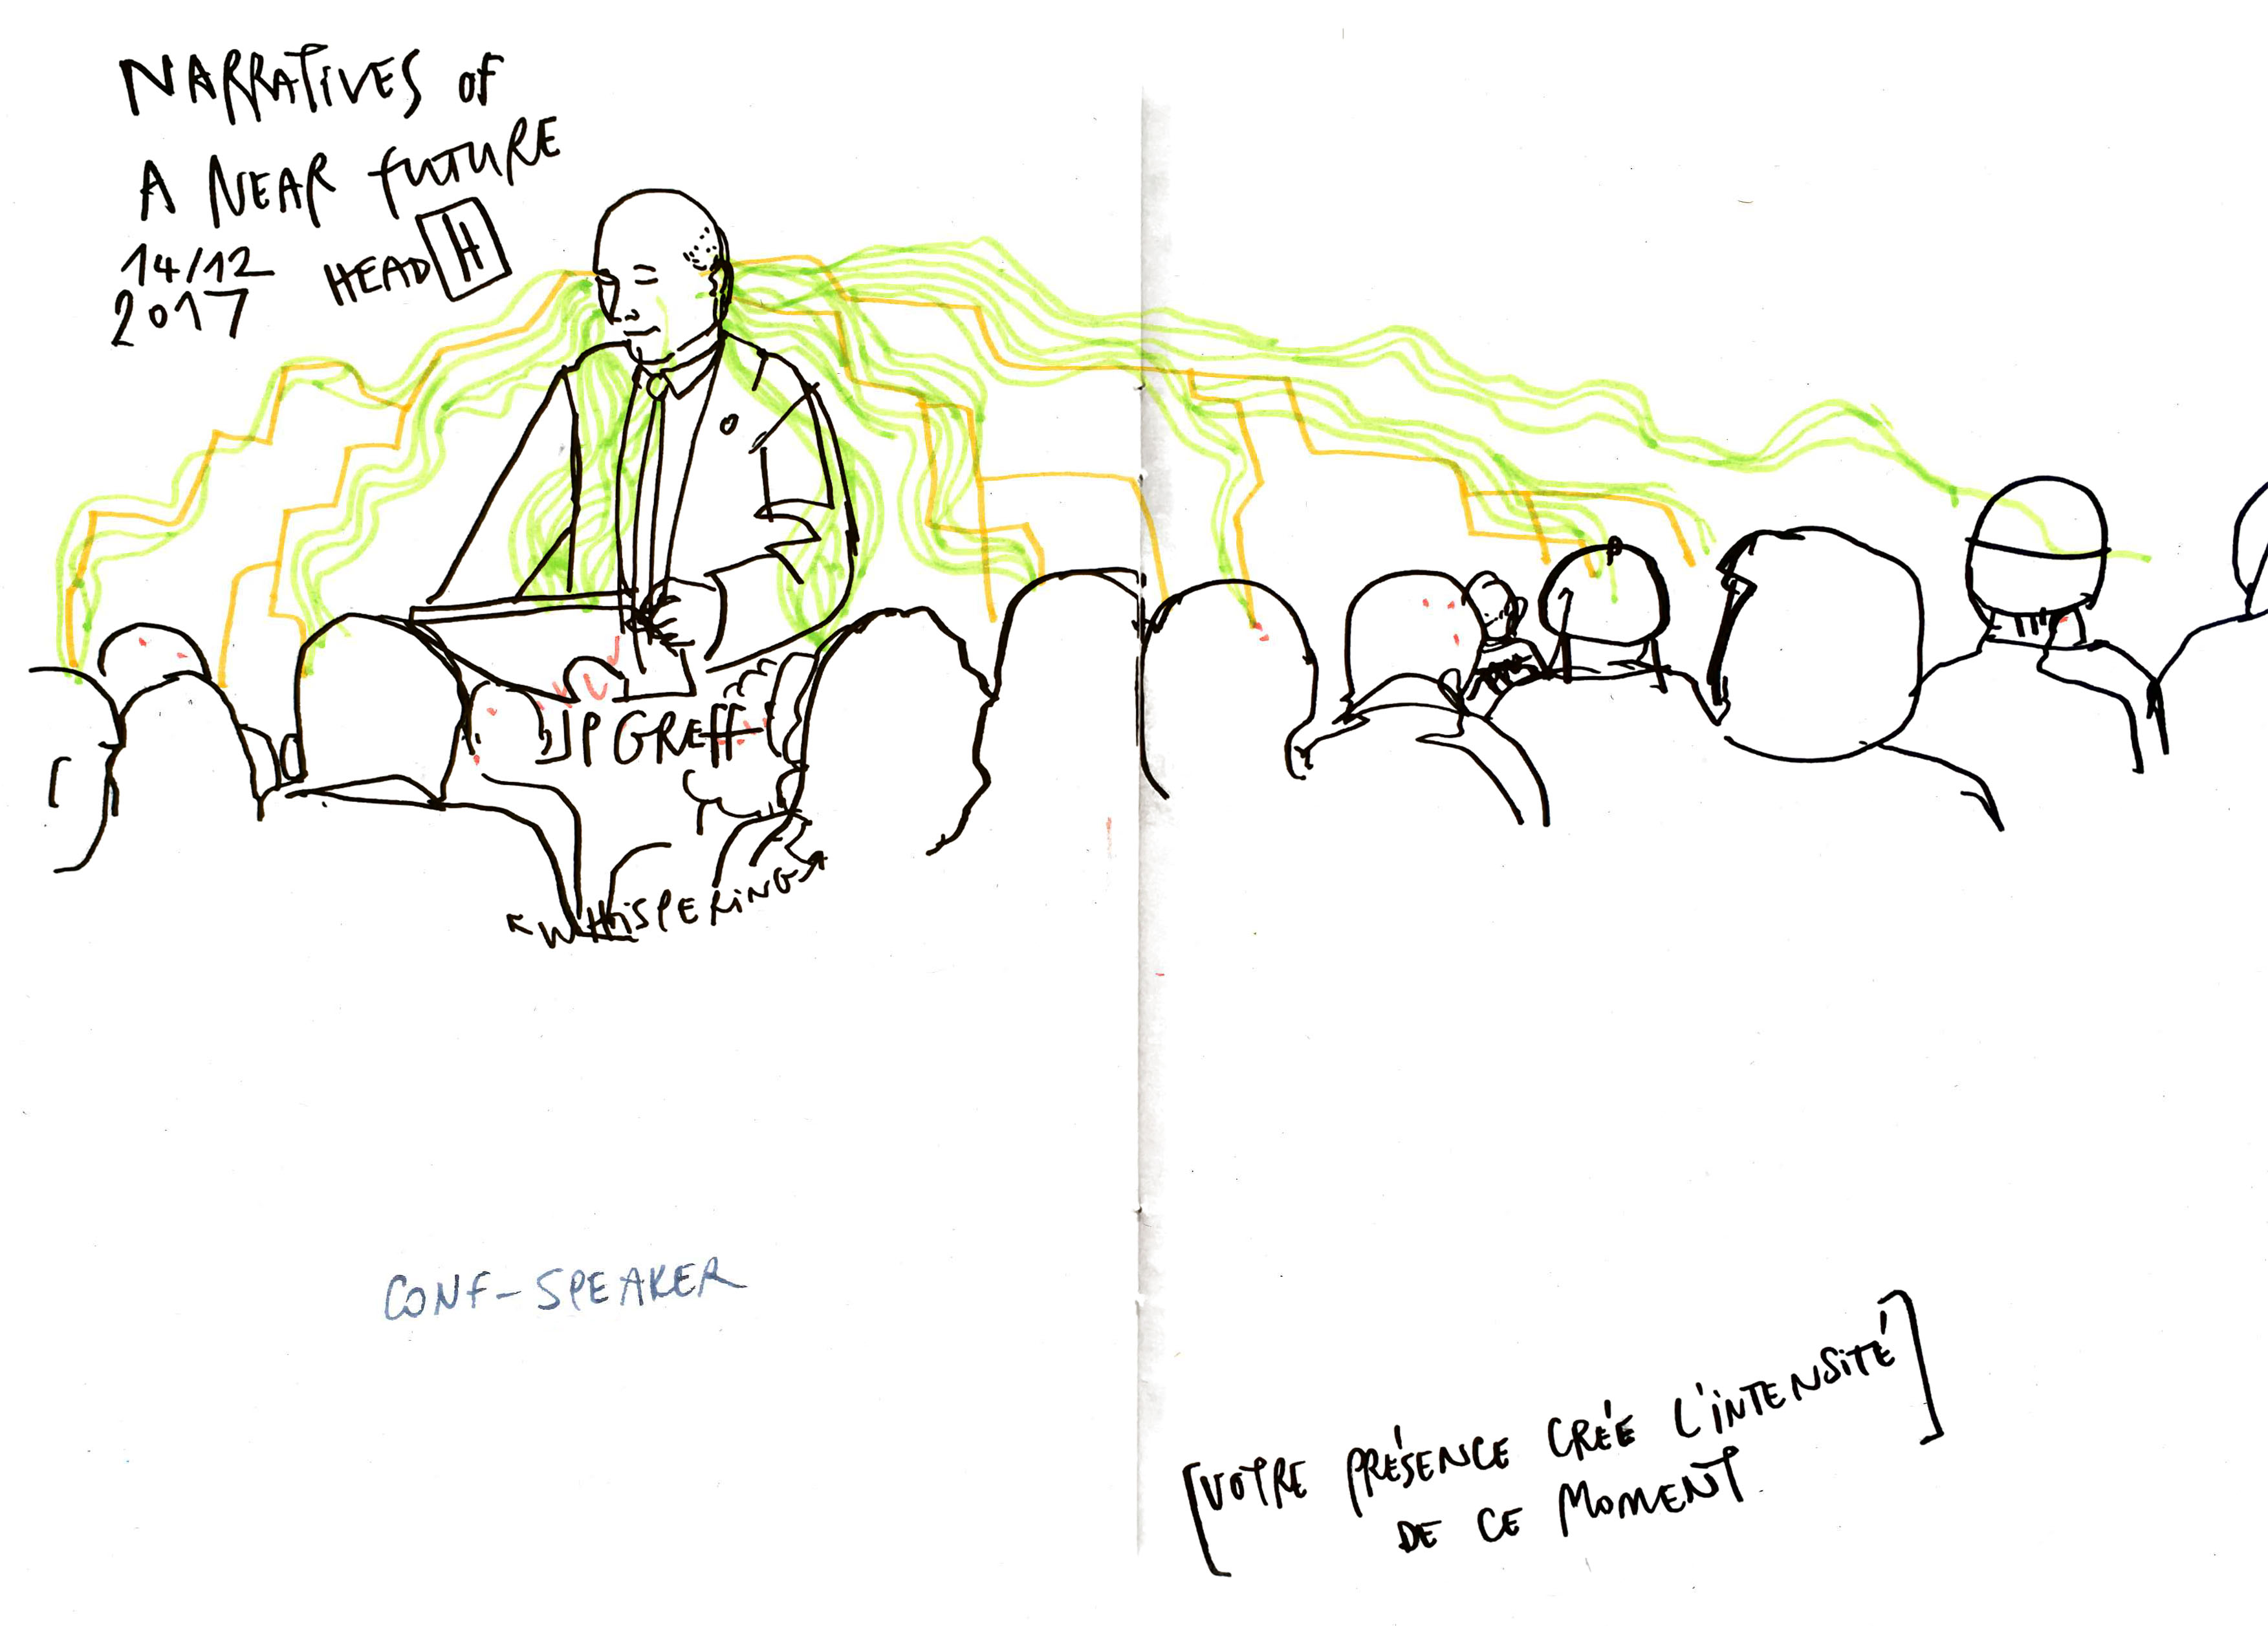 NARRATIVES of
A NEAR fUTURE
14/12
2017
HEAD H
JP GREff
WHISPERING
CONF-SPEAKER
[VOTRE PRÉSENCE CRÉE L'INTENSITÉ
DE CE MOMENT]